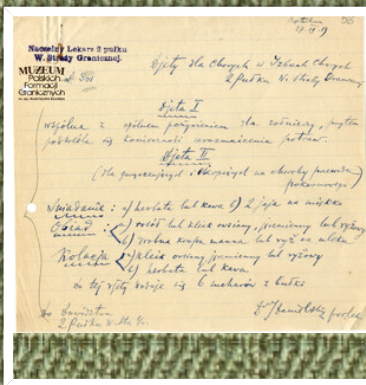 Naczelny Lekarz 2 pułku
W. Straży Granicznej.
MUZEUM
Polskich
Formacji
Granicznych
Djety dla Chorych w Izbach Chorych
2 Pułku W. Straży
Djeta I
wspólna z ogólnem pożywieniem dla żołnierzy, przytem
podkreśla się konieczność urozmaicenia potraw.
Djeta II
(dla gorączkujących i cierpiących na choroby przewodu
pokarmowego)
Śniadanie: a) herbata lub kawa b) 2 jaja na miękko
Obiad: a) rosół lub kleik owsiany, jęczmienny lub ryżowy
b) drobna krupa manna lub ryż na mleku
Kolacja a) kleik owsiany jęczmienny lub ryżowy
b) herbata lub kawa
do tej djety dodaje się 6 sucharów z bułki
Do Dowództwa
2 Pułku